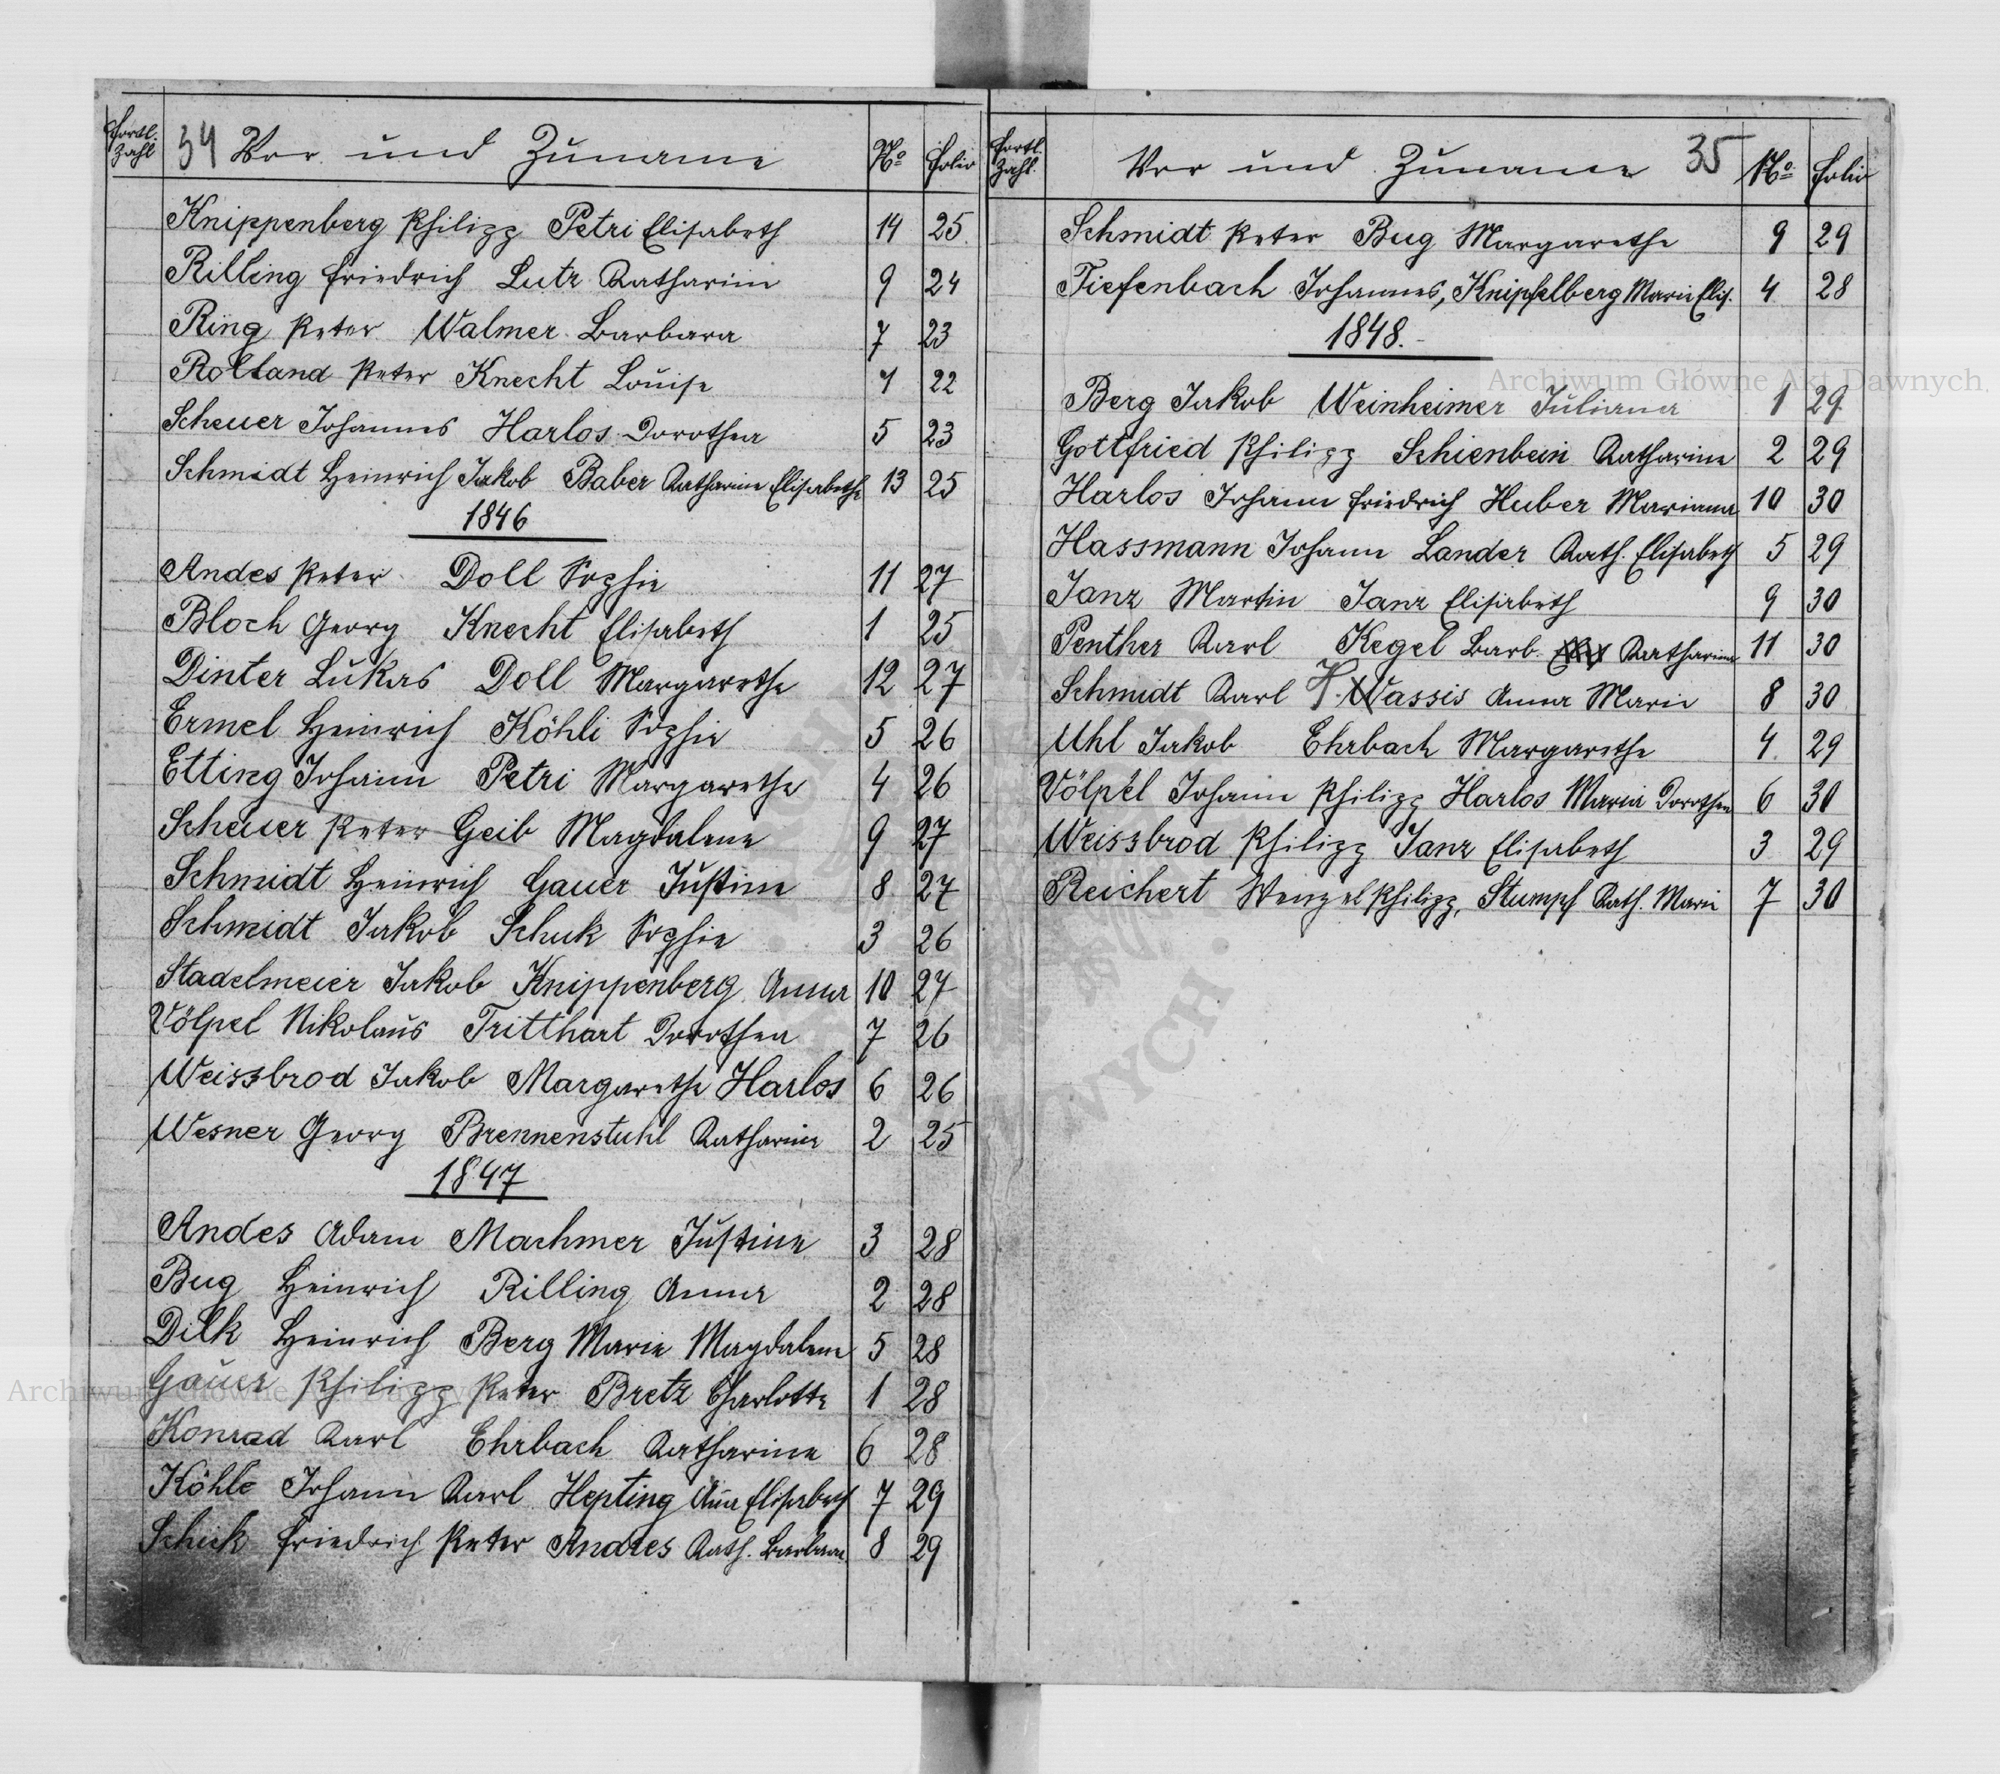 Fortl. Zahl 34 Vor und Zuname No Folio
Knippenberg Philipp Petri Elisabeth 14 25
Rilling Friedrich Lutz Katharine 9 24
Ring Peter Walmer Barbara 7 23
Rolland Peter Knecht Louise 1 22
Scheuer Johannes Harlos Dorothea 5 23
Schmidt Heinrich Jakob Baber Katharine Elisabethe 13 25
1846
Andes Peter Doll Sophie 11 27
Bloch Georg Knecht Elisabeth 1 25
Dinter Lukas Doll Margarethe 12 27
Ermel Heinrich Köhli Sophie 5 26
Etting Johann Petri Margarethe 4 26
Scheuer Peter Geib Magdalene 9 27
Schmidt Heinrich Gauer Justine 8 27
Schmidt Jakob Schuk Sophie 3 26
Stadelmeier Jakob Knippenberg Anna 10 27
Völpel Nikolaus Tritthart Dorothea 7 26
Weissbrod Jakob Margarethe Harlos 6 26
Wesner Georg Brennenstuhl Katharine 2 25
1847
Andes Adam Machmer Justine 3 28
Bug Heinrich Rilling Anna 2 28
Dilk Heinrich Berg Marie Magdalene 5 28
Gauer Philipp Peter Bretz Charlotte 1 28
Konrad Karl Ehrbach Katharine 6 28
Köhle Johann Karl Hepting Anna Elisabeth 7 29
Schuk Friedrich Peter Andres Kath. Barbara 8 29
Fortl. Zahl. Vor und Zuname 35 No. Folio
Schmidt Peter Bug Margarethe 9 29
Tiefenbach Johannes, Knipfelberg Marie Elis. 4 28
1848.
Berg Jakob Weinheimer Juliana 1 29
Gottfried Philipp Schienbein Katharine 2 29
Harlos Johann Friedrich Huber Marianna 10 30
Hassmann Johann Lander Kath. Elisabeth 5 29
Janz Martin Janz Elisabeth 9 30
Penther Karl Kegel Barb. Katharina 11 30
Schmidt Karl Wassis Anna Marie 8 30
Uhl Jakob Ehrbach Margarethe 4 29
Völpel Johann Philipp Harlos Maria Dorothea 6 30
Weissbrod Philipp Janz Elisabeth 3 29
Reichert Wenzel Philipp, Stumpf Kath. Marie 7 30
Archiwum Główne Akt Dawnych
Archiwum Główne Akt Dawnych